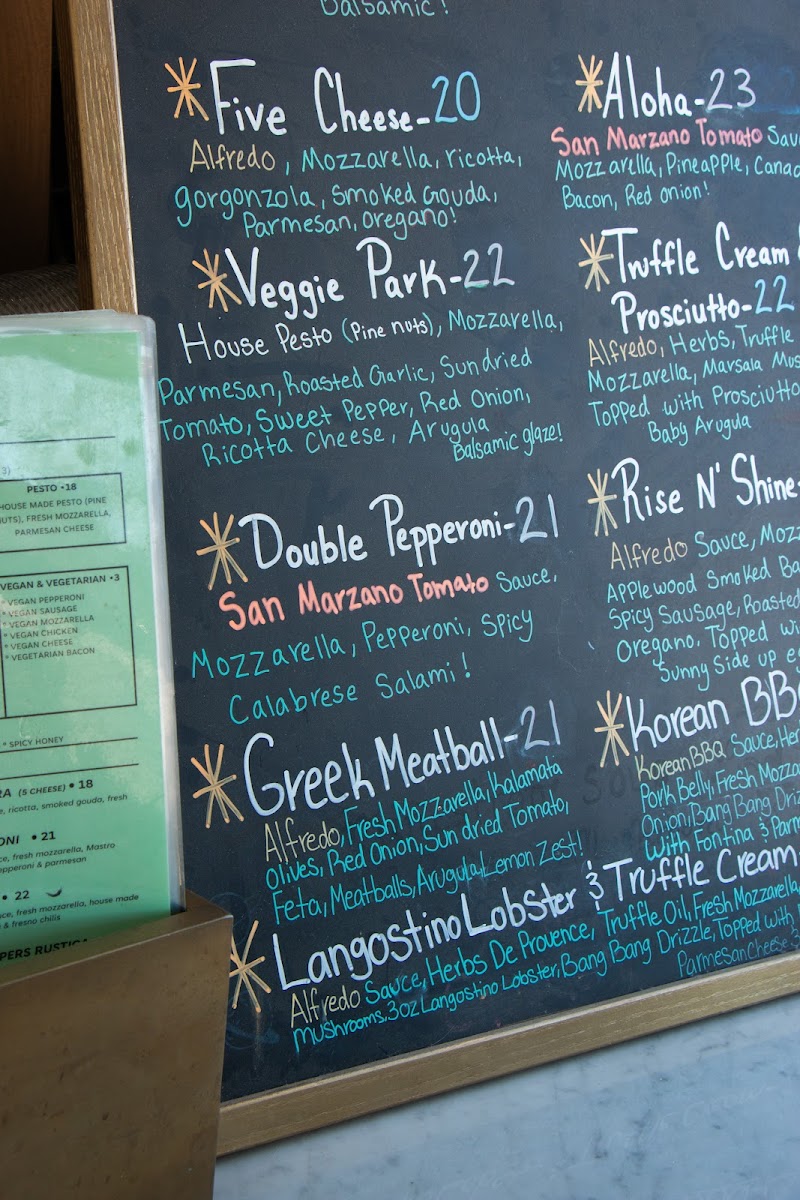 Balsamic!
Five Cheese-20
Alfredo, Mozzarella, ricotta,
gorgonzola, smoked Gouda,
Parmesan, oregano!
Veggie Park-22
House Pesto (Pine nuts), Mozzarella,
Parmesan, Roasted Garlic, Sun dried
Tomato, Sweet Pepper, Red Onion,
Ricotta Cheese, Arugula
Balsamic glaze!
Double Pepperoni-21
San Marzano Tomato Sauce,
Mozzarella, Pepperoni, Spicy
Calabrese Salami!
Greek Meatball-21
Alfredo, Fresh Mozzarella, Kalamata
Olives, Red Onion, Sun dried Tomato,
Feta, Meatballs, Arugula, Lemon Zest!
Langostino Lobster & Truffle Cream
Alfredo Sauce, Herbs De Provence, Truffle Oil, Fresh Mozzarella
Mushrooms, 3oz Langostino Lobster, Bang Bang Drizzle, Topped with
Parmesan Cheese
Aloha-23
San Marzano Tomato
Mozzarella, Pineapple,
Bacon, Red onion!
Truffle Cream
Prosciutto-22
Alfredo, Herbs, Truffle
Mozzarella, Marsala
Topped with Prosciutto
Baby Arugula
Rise N' Shine-
Alfredo Sauce,
Applewood Smoked
Spicy Sausage, Roasted
Oregano. Topped
Sunny Side up
Korean BBQ
Korean BBQ Sauce,
Pork Belly, Fresh
Onion, Bang Bang
With Fontina &
PESTO •18
HOUSE MADE PESTO (PINE
NUTS), FRESH MOZZARELLA,
PARMESAN CHEESE
VEGAN & VEGETARIAN •3
* VEGAN PEPPERONI
* VEGAN SAUSAGE
* VEGAN MOZZARELLA
* VEGAN CHICKEN
* VEGAN CHEESE
* VEGETARIAN BACON
* SPICY HONEY
(5 CHEESE) • 18
ricotta, smoked gouda, fresh
• 21
fresh mozzarella, Mastro
pepperoni & parmesan
• 22
fresh mozzarella, house made
& fresno chilis
RUSTICA